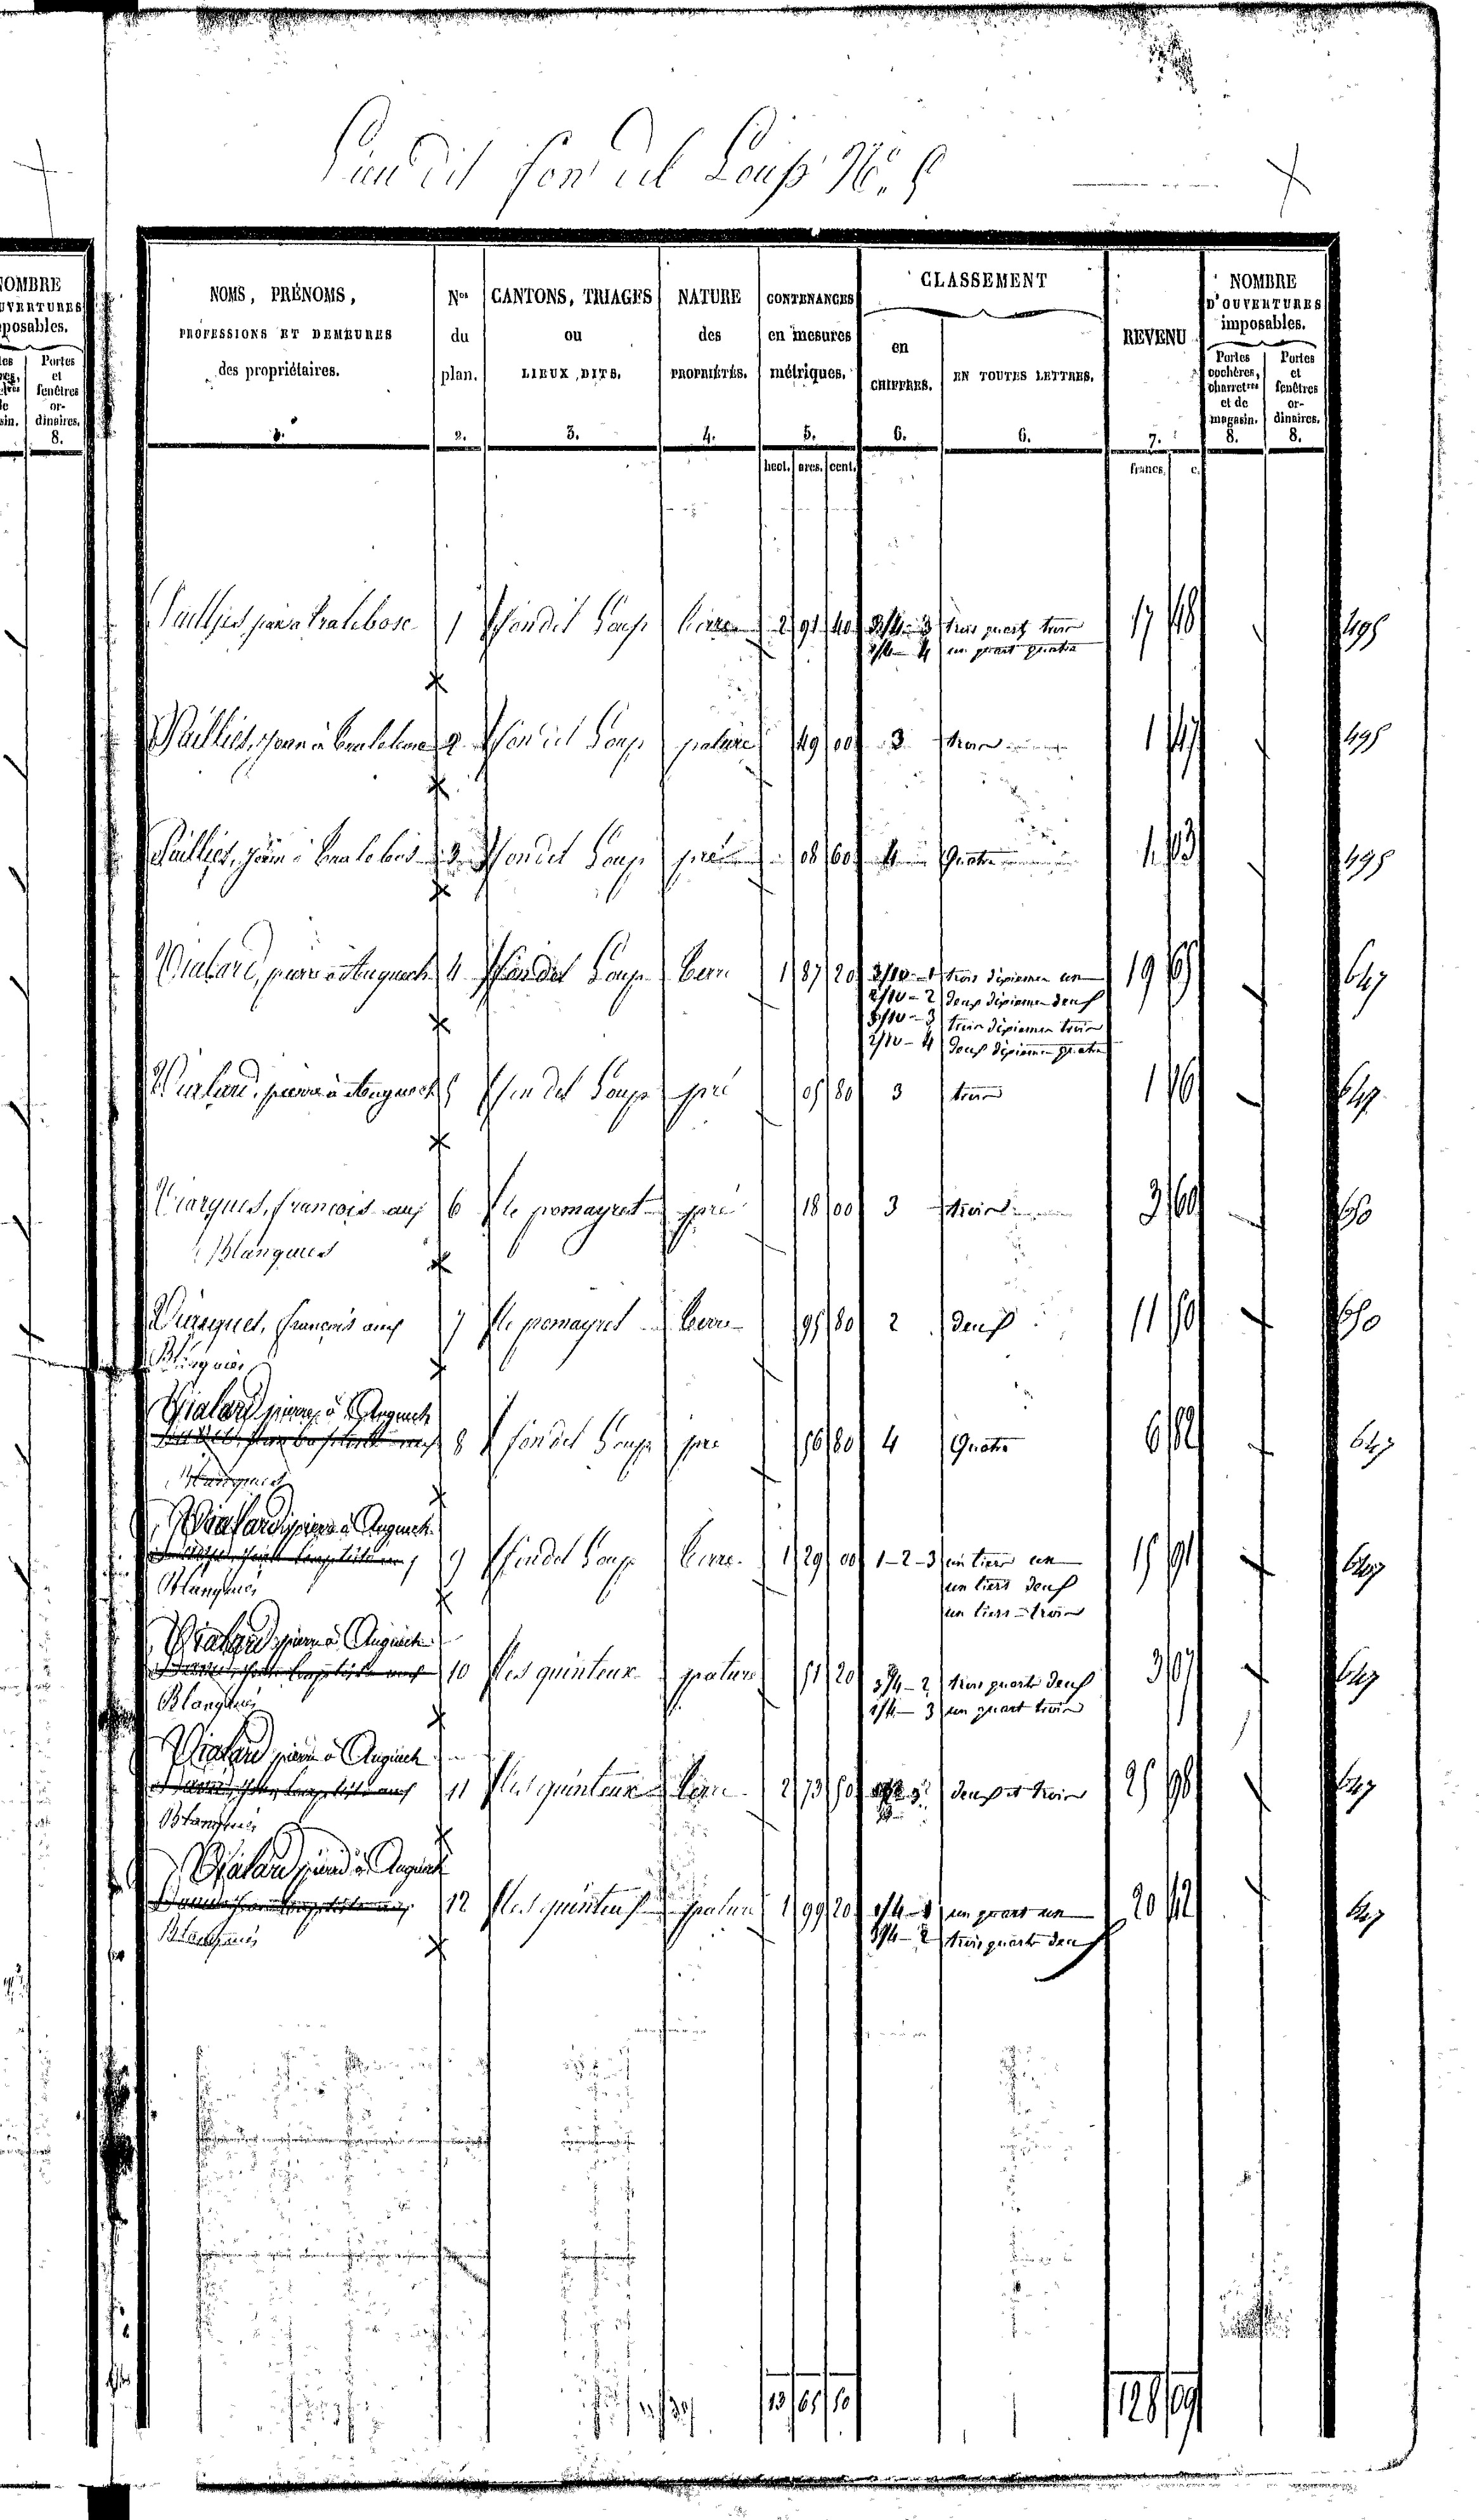 Lieu dit fon del Loup N°. 5
NOMBRE
posables.
Portes
et
fenêtres
or-
dinaires.
8.
NOMS, PRÉNOMS,
PROFESSIONS ET DEMEURES
des propriétaires.
Nos
du
plan.
2.
CANTONS, TRIAGES
ou
LIEUX DITS.
3.
NATURE
des
PROPRIÉTÉS.
4.
CONTENANCES
en mesures
métriques.
5.
hect. ares. cent.
CLASSEMENT
en
CHIFFRES.
6.
EN TOUTES LETTRES.
6.
REVENU
7.
francs. c.
NOMBRE
D'OUVERTURES
imposables.
Portes
cochères,
et de
magasin.
8.
Portes
et
fenêtres
or-
dinaires.
8.
1 fon del Loup 2 91 40 3/4 - 3 trois quart trois 17 48 495
1/4 - 4 un quart quatre
2 fon del Loup pature 49 00 3 trois 1 47 495
3 fon del Loup pré 08 60 4 Quatre 1 03 495
Vialard, pierre à 4 fon del Loup terre 1 87 20 3/10 - 1 trois dixieme un 19 647
2/10 - 2 deux dixieme deux
3/10 - 3 trois dixieme trois
2/10 - 4 deux dixieme quatre
5 fon del Loup pré 05 80 3 trois 1 16 647
françois aux 6 le pomayret pré 18 00 3 trois 3 60 650
Blanquies
françois aux 7 le pomayret terre 95 80 2 deux 11 50 650
Blanquies
Vialard pierre à 8 fon del Loup pré 56 80 4 Quatre 6 82 647
Vialard pierre à 9 fon del Loup terre 1 29 00 1-2-3 un tiers un 15 91 647
Blanquies un tiers deux
un tiers trois
Vialard pierre à 10 les quinteux pature 51 20 3/4 - 2 trois quarts deux 3 07 647
Blanquies 1/4 - 3 un quart trois
Vialard pierre à 11 les quinteux terre 2 73 50 deux et trois 25 98 647
Blanquies
Vialard pierre à 12 les quinteux pature 1 99 20 1/4 - 1 un quart un 20 12 647
Blanquies 3/4 - 2 trois quarts deux
13 65 50 128 09